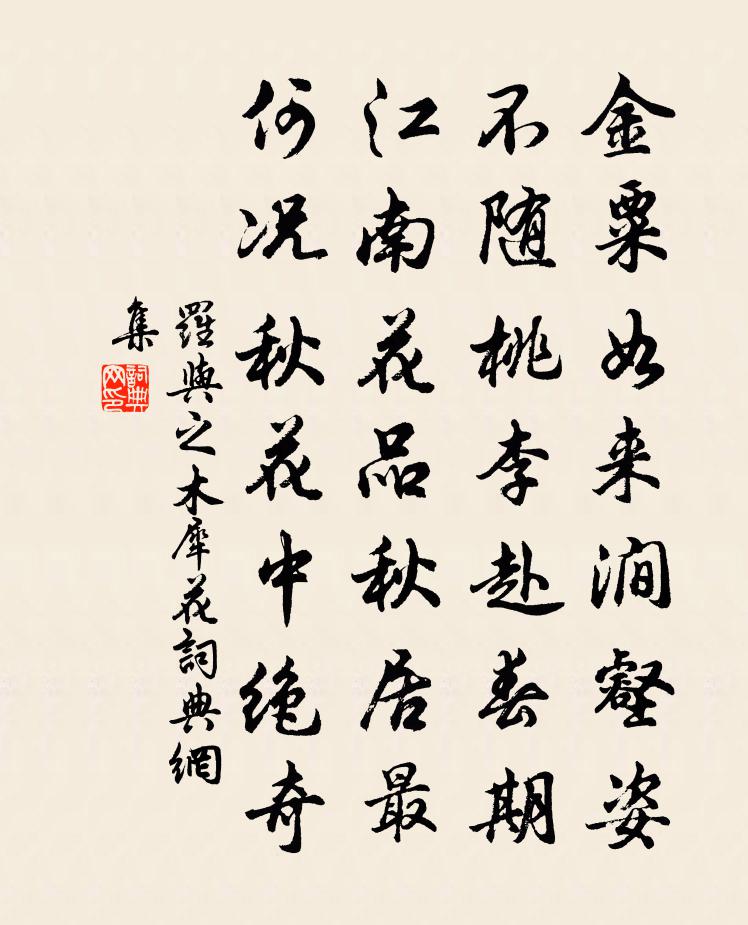 金粟如来涧壑姿
不随桃李赴春期
江南花品秋居最
何况秋花中绝奇
羅與之木犀花詞典網
集
詞典
网印